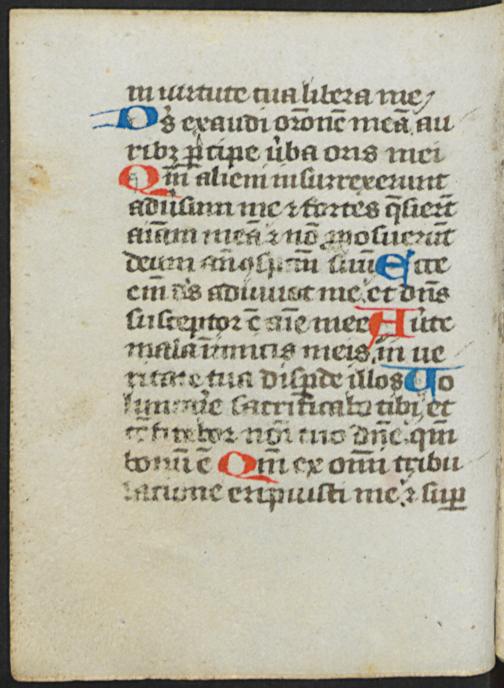 in uirtute tua libera me
Ds exaudi orōnē meā au
ribꝫ ꝑcipe ūba oris mei
Qm̄ alieni insurrexerunt
aduūsum me ⁊ fortes q̄sierūt
aīam meā ⁊ nō ꝓposuerūt
deum an̄ ↄspctū suū Ecce
eīn ds adiuuat me et dn̄s
susceptor ē aīe mee Auūte
mala inimicis meis in ue
ritate tua disꝑde illos Uo
luntarie sacrificabo tibi et
cōfitebor noī tuo dn̄e qm̄
bonū ē Qm̄ ex omī tribu
latione eripuisti me ⁊ suꝑ